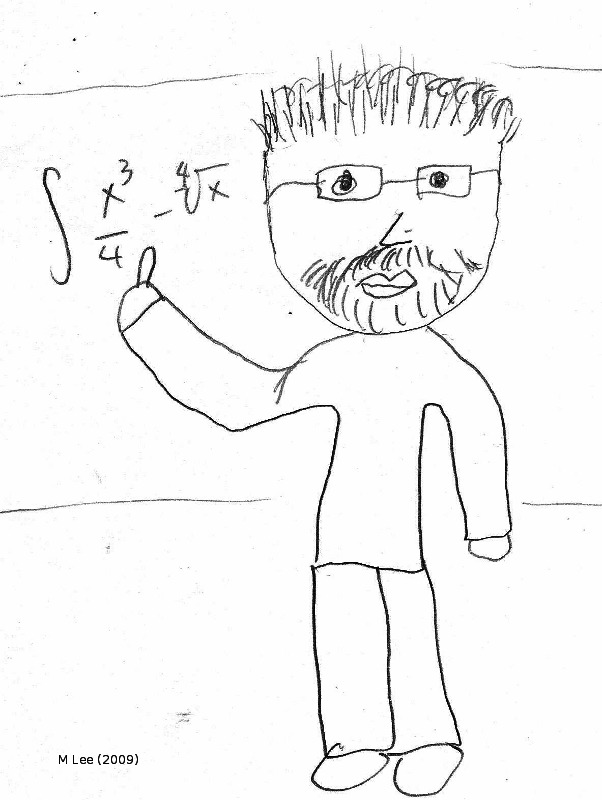 ∫ x³/4 - ∜x
M Lee (2009)